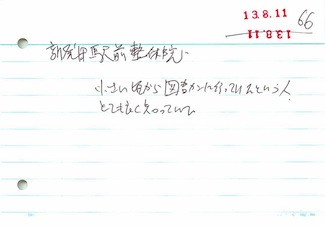 13.8.11
66
13.8.11
駅前整体院
小さい頃から図書かんに行っているという人
とても良く知っていて